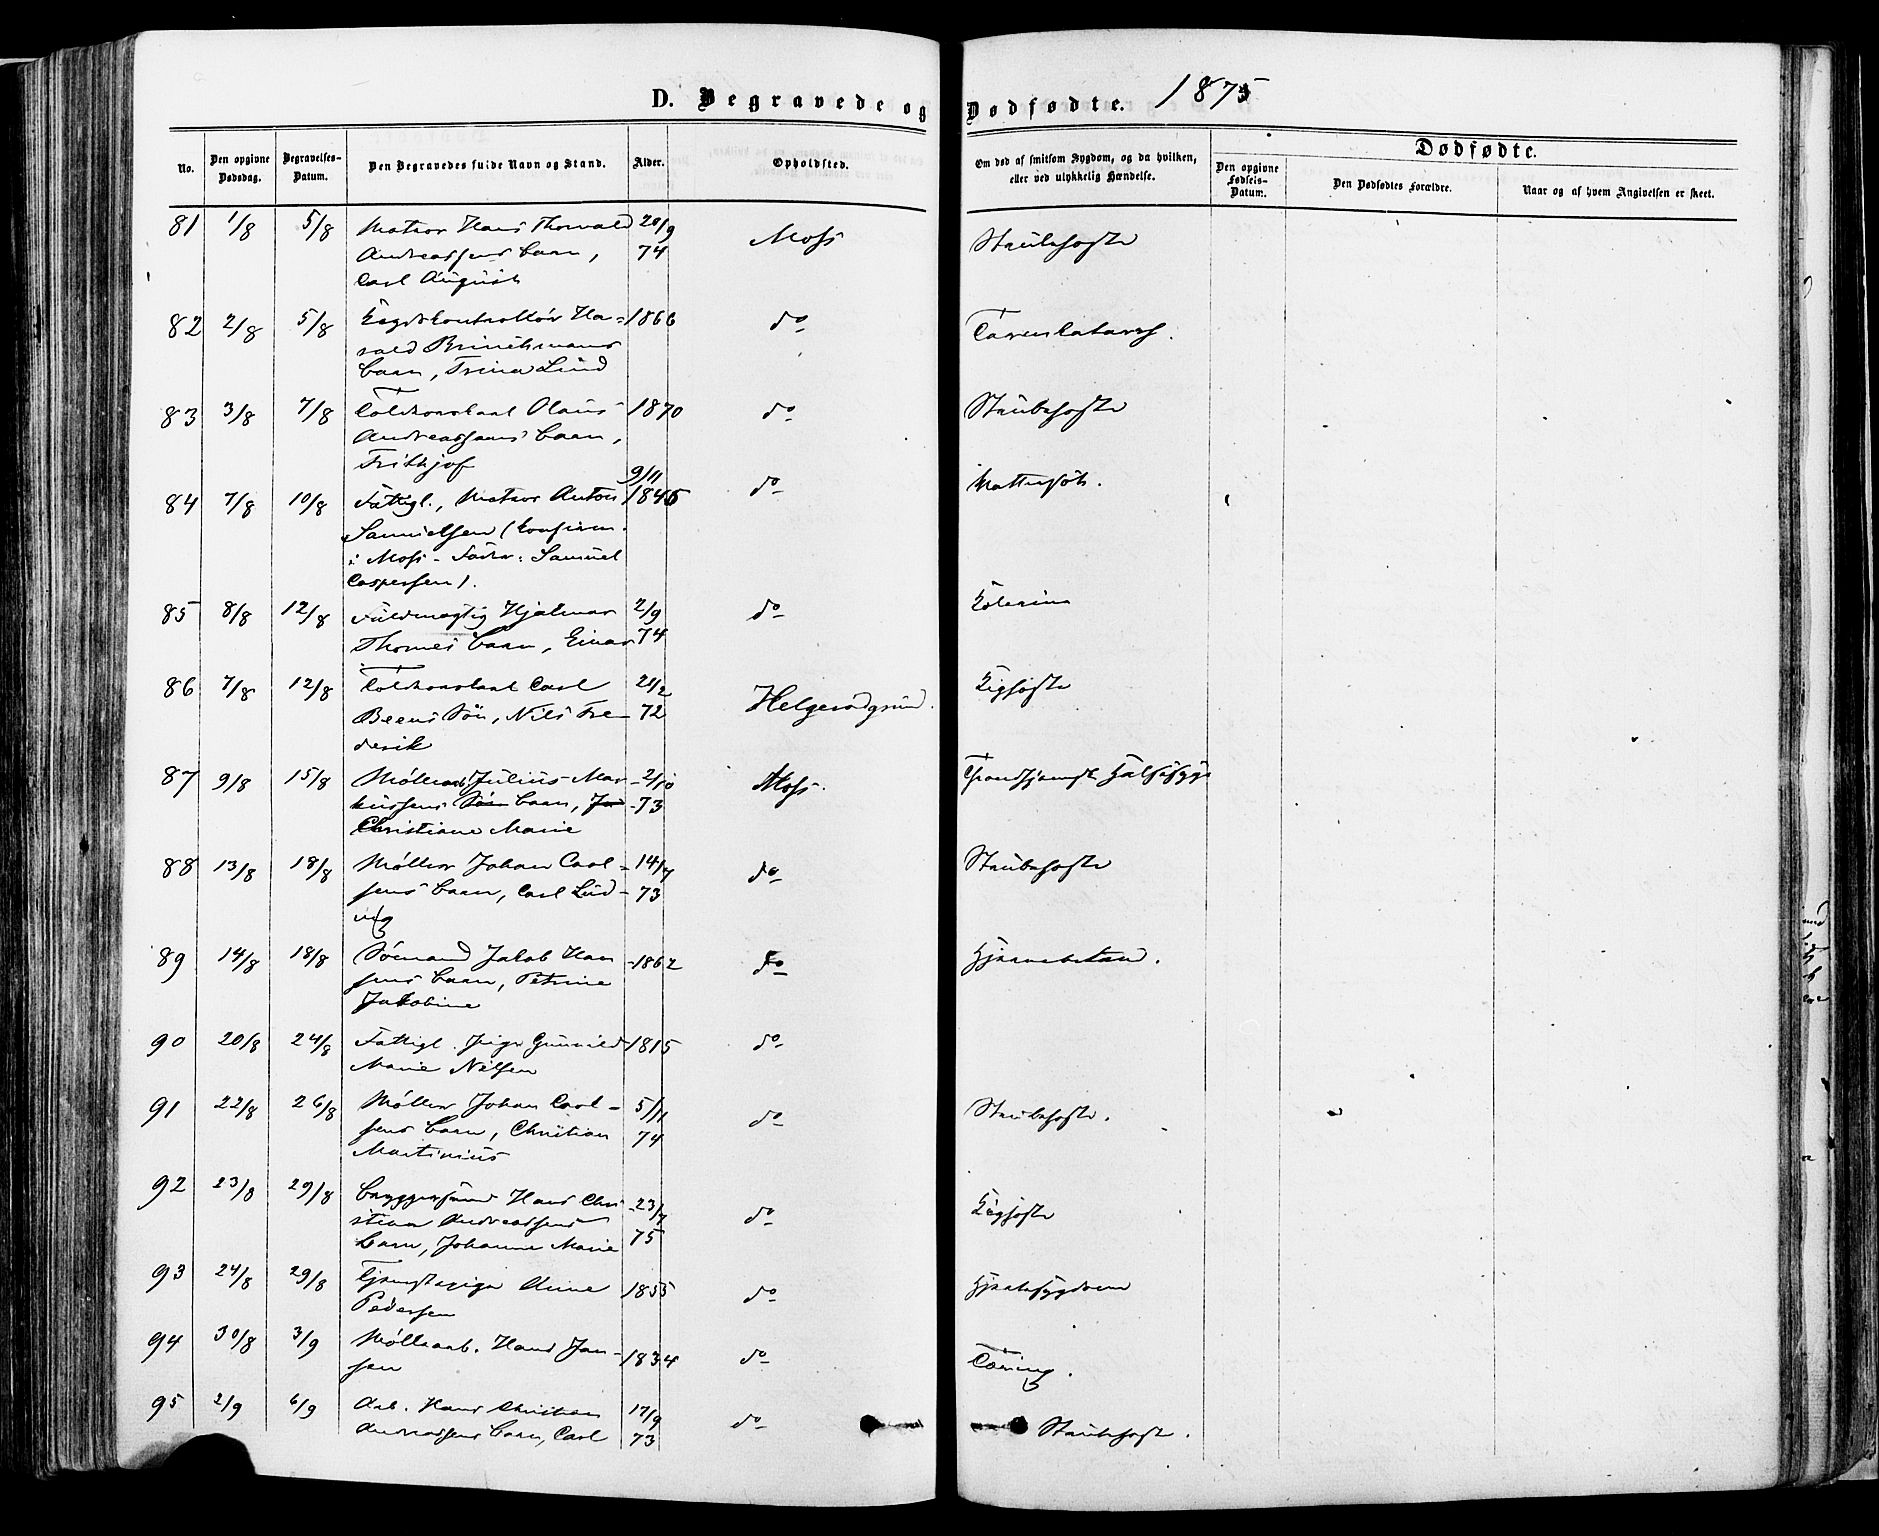 D. Begravede og Dødfødte. 1875
No.
Den opgivne Dødsdag.
Begravelses-Datum.
Den Begravedes fulde Navn og Stand.
Alder.
Opholdssted.
Om død af smitsom Sygdom, og da hvilken, eller ved ulykkelig Hændelse.
Dødfødte.
Den opgivne Fødsels-Datum.
Den Dødfødtes Forældre.
Naar og af hvem Angivelsen er skeet.
81 1/8 5/8 Matros Hans Thorvald 20/9 Moss Strubehoste
Andreassens Barn, 74
Carl August
82 2/8 5/8 Ha- 1866 do Tarmkatarrh.
rald Brinchmans
Barn, Trina Lund
83 3/8 7/8 Toldkonstabel Olaus 1870 do Strubehoste
Andreassens Barn,
Frithjof
84 7/8 10/8 Fattigl., Matros Anton 9/11 1846 do
Samuelsen (konfirm.
i Moss - Fader: Samuel
Caspersen).
85 8/8 12/8 Fuldmægtig Hjalmar 2/9 do Kolerine
Thornes Barn, Einar 74
86 7/8 12/8 Toldkonstabel Carl 21/2 Helgerødgrund. Kighoste
Beens Søn, Nils Fre- 72
derik
87 9/8 15/8 Møllearb. Julius Mar- 2/10 Moss. Trondhjemsk Halssyge
kussens Søn Barn, Jo 73
Christiane Marie
88 13/8 18/8 Møller Johan Carl- 14/7 do Strubehoste
sens Barn, Carl Lud- 73
vig
89 14/8 18/8 Sømand Jakob Han- 1862 do
sens Barn, Petrine
Jakobine
90 20/8 24/8 Fattigl. Pige Gunild 1815 do
Marie Nilsen
91 22/8 26/8 Møller Johan Carl- 5/11 do Strubehoste.
sens Barn, Christian 74
Martinius
92 23/8 29/8 Bryggersvend Hans Chri- 23/7 do Kighoste
stian Andreassens 75
Barn, Johanne Marie
93 24/8 29/8 Tjenestepige Anne 1855 do Hjertesygdom
Pedersen
94 30/8 3/9 Møllearb. Hans Jan- 1834 do Tæring.
sen
95 2/9 6/9 Arb. Hans Christian 17/9 do Strubehoste.
Andreassens Barn, Carl 73